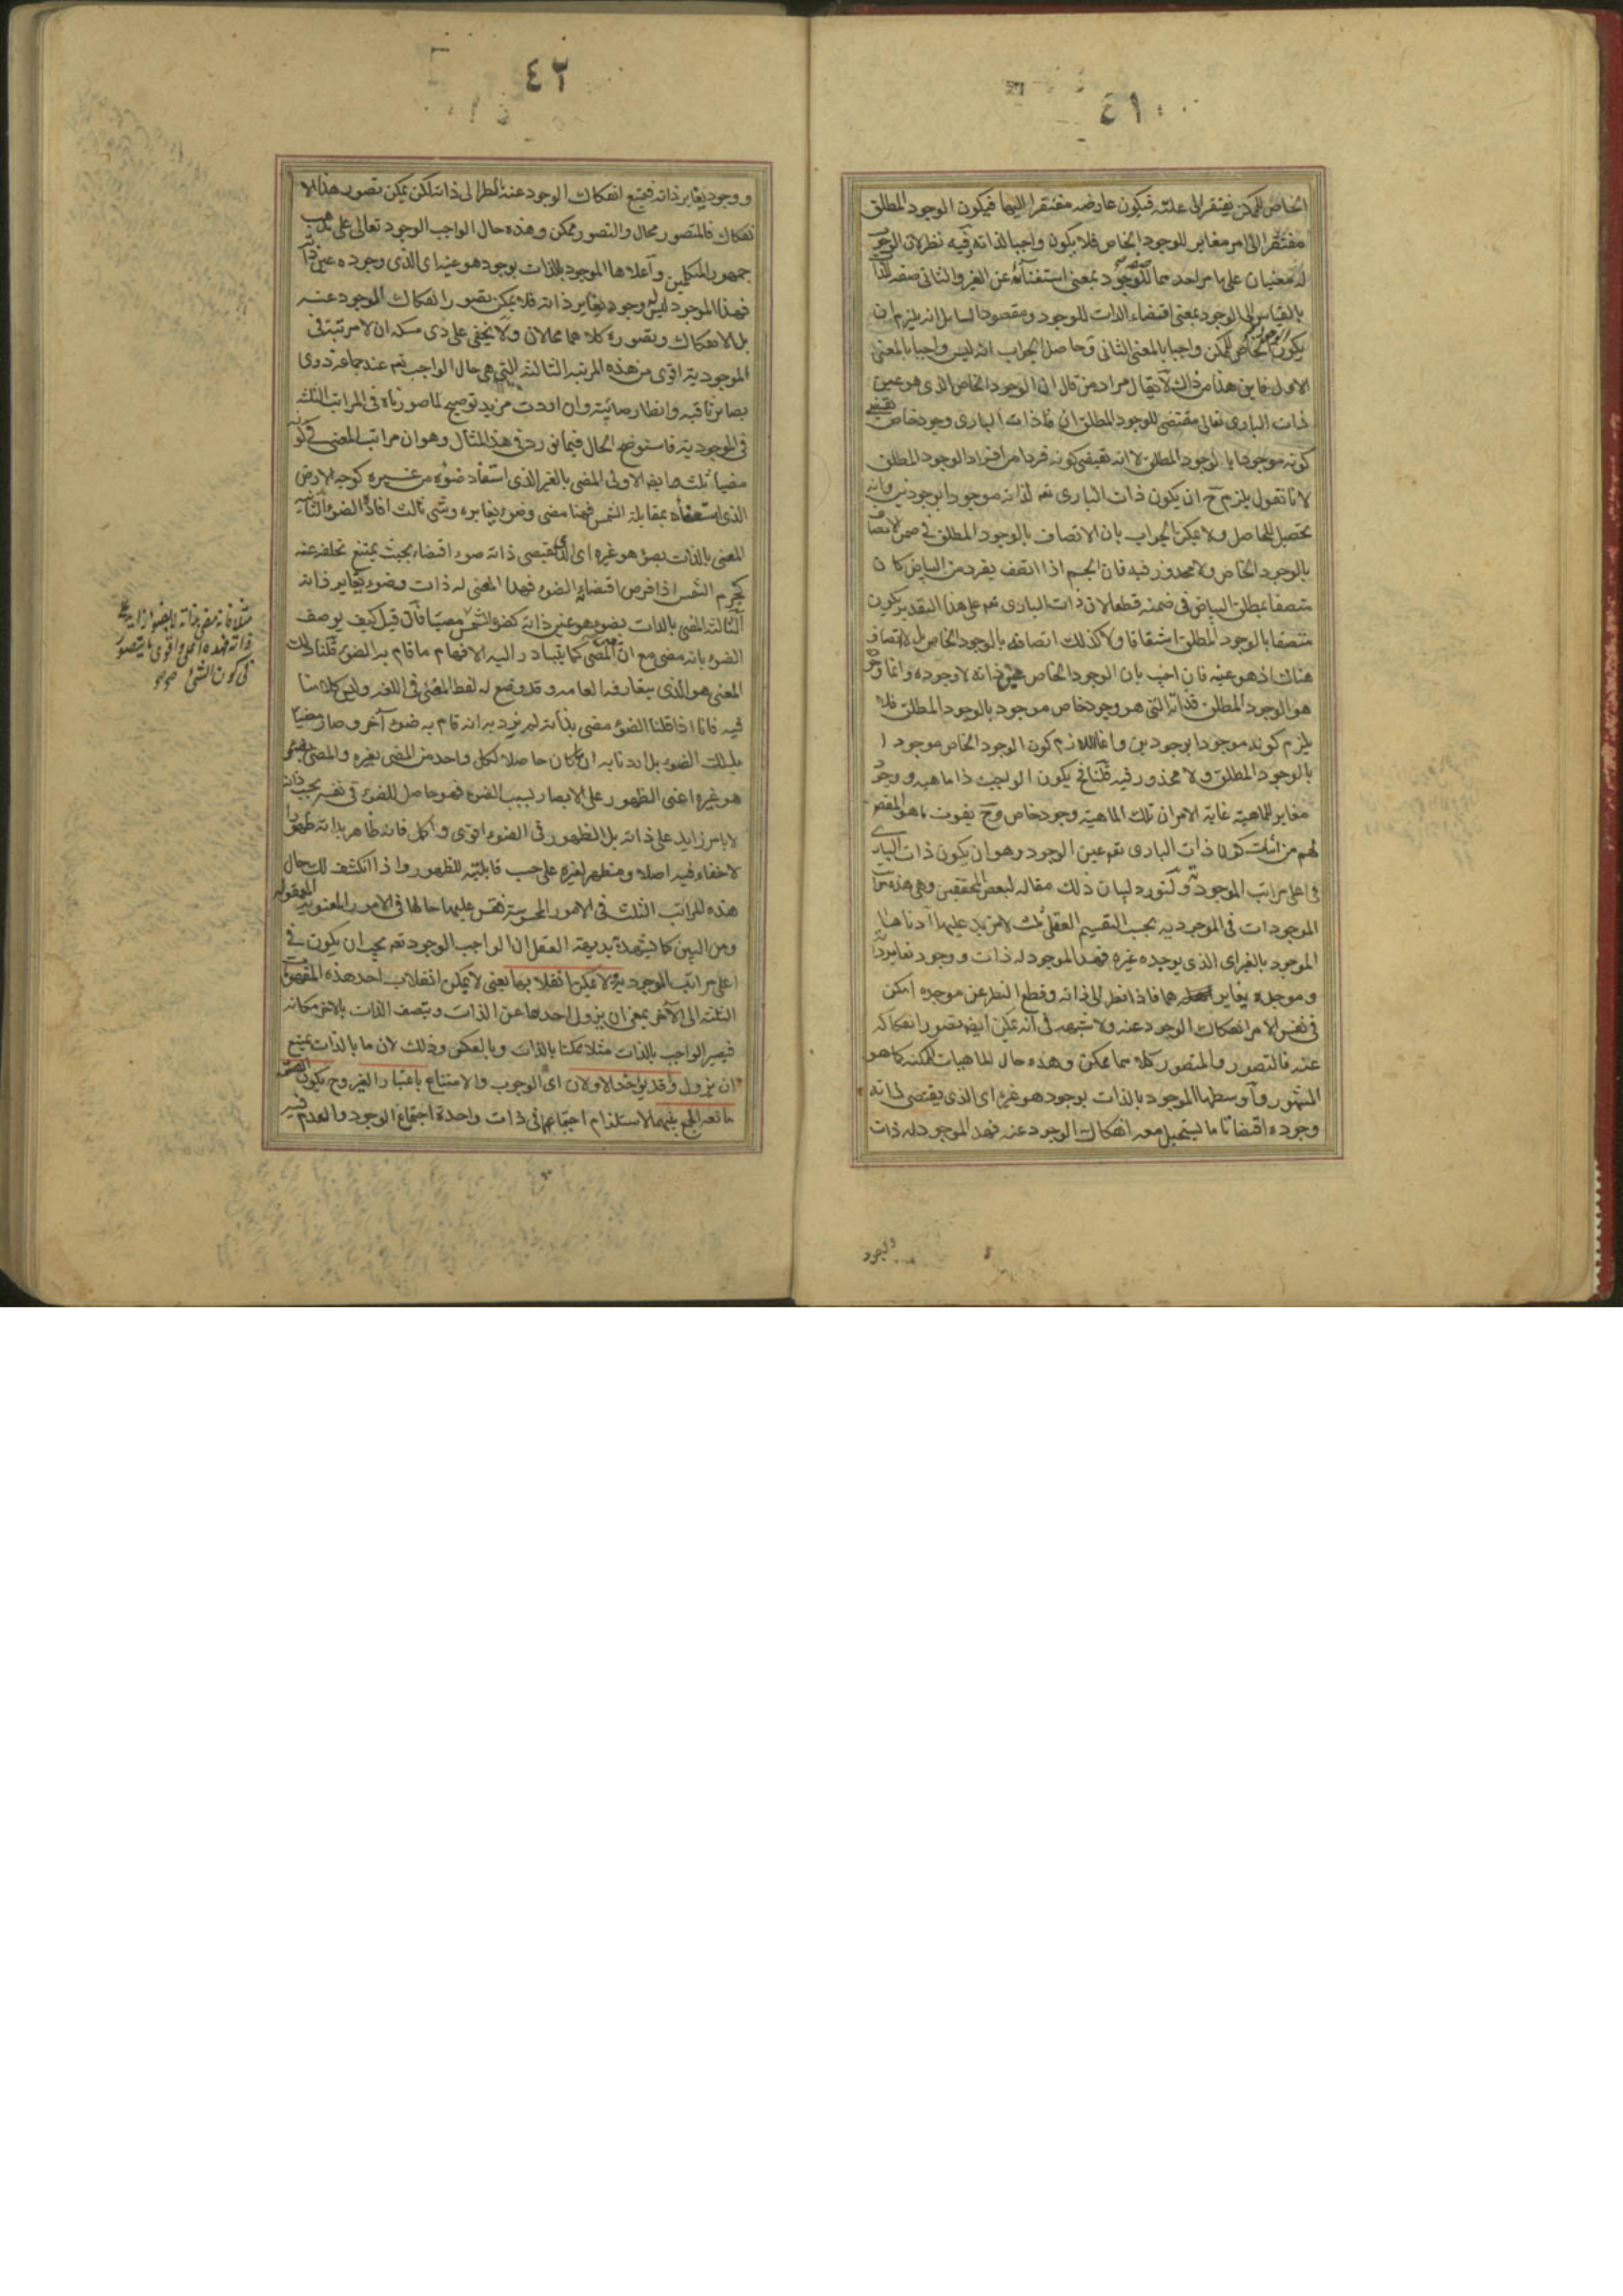 ٤١
الخاص للممكن يفتقر الى علته فيكون عارضه مفتقرا اليها فيكون الوجود المطلق
مفتقرا الى امر مغاير للوجود الخاص فلا يكون واجبا لذاته وفيه نظر لان الوجوب
له معنيان على ما مر احدهما صفة للوجود بمعنى استغنائه عن الغير والثانى صفة للذات
بالقياس الى الوجود بمعنى اقتضاء الذات للوجود ومقصود السايل انه يلزم ان
يكون الوجود الخاص للممكن واجبا بالمعنى الثانى وحاصل الجواب انه ليس واجبا بالمعنى
الاول فاين هذا من ذاك لا يقال مراد من قال ان الوجود الخاص الذى هو عين
ذات البارى تعالى مقتضى للوجود المطلق ان ذات البارى وجود خاص يقتضى
كونه موجودا بالوجود المطلق لا انه يقتضى كونه فردا من افراد الوجود المطلق
لانا نقول يلزم ح ان يكون ذات البارى تعم لذاته موجودا بوجودين وانه
تحصيل للحاصل ولا يمكن الجواب بان الاتصاف بالوجود المطلق فى ضمن الاتصاف
بالوجود الخاص ولا محذور فيه فان الجسم اذا اتصف بفرد من البياض كان
متصفا بمطلق البياض فى ضمنه قطعا لان ذات البارى تعم على هذا التقدير يكون
متصفا بالوجود المطلق اشتقاقا ولا كذلك اتصافه بالوجود الخاص بل لا اتصاف
هناك اذ هو عينه فان اجيب بان الوجود الخاص عين ذاته لا وجوده وانما وجوده
هو الوجود المطلق فذاته التى هو وجود خاص موجود بالوجود المطلق فلا
يلزم كونه موجودا بوجودين وانما اللازم كون الوجود الخاص موجودا
بالوجود المطلق ولا محذور فيه قلنا فح يكون الواجب ذا ماهية ووجود
مغاير للماهية غاية الامر ان تلك الماهية وجود خاص وح يفوت ما هو المقصود
لهم من اثبات كون ذات البارى تعم عين الوجود وهو ان يكون ذات البارى
فى اعلى مراتب الموجودية ولنورد لبيان ذلك مقاله لبعض المحققين وهى هذه مراتب
الموجودات فى الموجودية بحسب التقسيم العقلى ثلث لا مزيد عليها ادناها
الموجود بالغير اى الذى يوجده غيره فهذا الموجود له ذات ووجود يغاير ذاته
وموجده يغايرهما فاذا نظر الى ذاته وقطع النظر عن موجده امكن
فى نفس الامر انفكاك الوجود عنه ولا شبهة فى انه يمكن ايضا تصور انفكاكه
عنه فالتصور والمتصور كلاهما ممكن وهذه حال الماهيات الممكنة كما هو
المشهور واوسطها الموجود بالذات بوجود هو غيره اى الذى يقتضى لذاته
وجوده اقتضاتا ما يستحيل معه انفكاك الوجود عنه فهذا الموجود له ذات
والوجود
٤٢
ووجود يغاير ذاته فيمتنع انفكاك الوجود عنه بالنظر الى ذاته لكن يمكن تصور هذا الا
نفكاك فالمتصور محال والتصور ممكن وهذه حال الواجب الوجود تعالى على مذهب
جمهور المتكلمين واعلاها الموجود بالذات بوجود هو عينه اى الذى وجوده عين ذاته
فهذا الموجود ليس له وجود يغاير ذاته فلا يمكن تصور انفكاك الوجود عنه
بل الانفكاك وتصوره كلاهما محالان ولا يخفى على ذى مسكة ان لا مرتبة فى
الموجودية اقوى من هذه المرتبة الثالثة التى هى حال الواجب تعم عند جماعة ذوى
بصاير ثاقبة وانظار صائبة وان اردت مزيد توضيح لما صورناه فى المراتب الثلثة
فى الموجودية فاستوضح الحال فيما نورده فى هذا المثال وهو ان مراتب المضى فى كونه
مضيا ثلث ايضا الاولى المضى بالغير الذى استفاد ضوئه من غيره كوجه الارض
الذى استضاء بمقابلة الشمس فهنا مضى وضوء يغايره وشى ثالث افاد الضوء الثانية
المضى بالذات بضوء هو غيره اى الذى يقتضى ذاته ضوء اقتضاء بحيث يمتنع تخلفه عنه
كجرم الشمس اذا فرض اقتضاؤه الضوء فهذا المضى له ذات وضوء يغاير ذاته
الثالثة المضى بالذات بضوء هو عين ذاته كضوء الشمس مضيا فان قيل كيف يوصف
الضوء بانه مضى مع ان المضى كما يتبادر اليه الافهام ما قام به الضوء قلنا ذلك
المعنى هو الذى يتعارفه العامة وقد وضع له لفظ المضى فى اللغة وليس كلامنا
فيه فانا اذا قلنا الضوء مضى بذاته لم نرد به انه قام به ضوء آخر وصار مضيا
بذلك الضوء بل اردنا به ان ما كان حاصلا لكل واحد من المضى بغيره والمضى بضوء
هو غيره اعنى الظهور على الابصار بسبب الضوء فهو حاصل للضوء فى نفسه بحسب ذاته
لا بامر زايد على ذاته بل الظهور فى الضوء اقوى واكمل فانه ظاهر بذاته ظهورا
لا خفاء فيه اصلا ومظهر لغيره على حسب قابليته للظهور واذا انكشف لك حال
هذه المراتب الثلث فى الامور المحسوسة فقس عليها حالها فى الامور المعنوية المعقولة
ومن البين كما يشهد به بديهة العقل ان الواجب الوجود تعم يجب ان يكون فى
اعلى مراتب الموجودية ولا يمكن انقلابها يعنى لا يمكن انقلاب احد هذه المفهومات
الثلثة الى الآخر بمعنى ان يزول احدها عن الذات ويتصف الذات بالاخر مكانه
فيصير الواجب بالذات مثلا ممكنا بالذات وبالعكس وذلك لان ما بالذات يمتنع
ان يزول وقد يؤخذ الاولان اى الوجوب والامتناع باعتبار الغير وح يكون القسمة
مانعة الجمع بينهما لاستلزام اجتماعهما فى ذات واحدة اجتماع الوجود والعدم فيه
ذاته فهذه اعلى واقوى ما يتصور
فى كون الشى